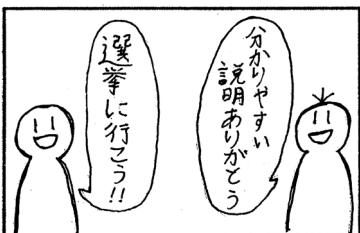 分かりやすい
説明ありがとう
選挙に行こう!!